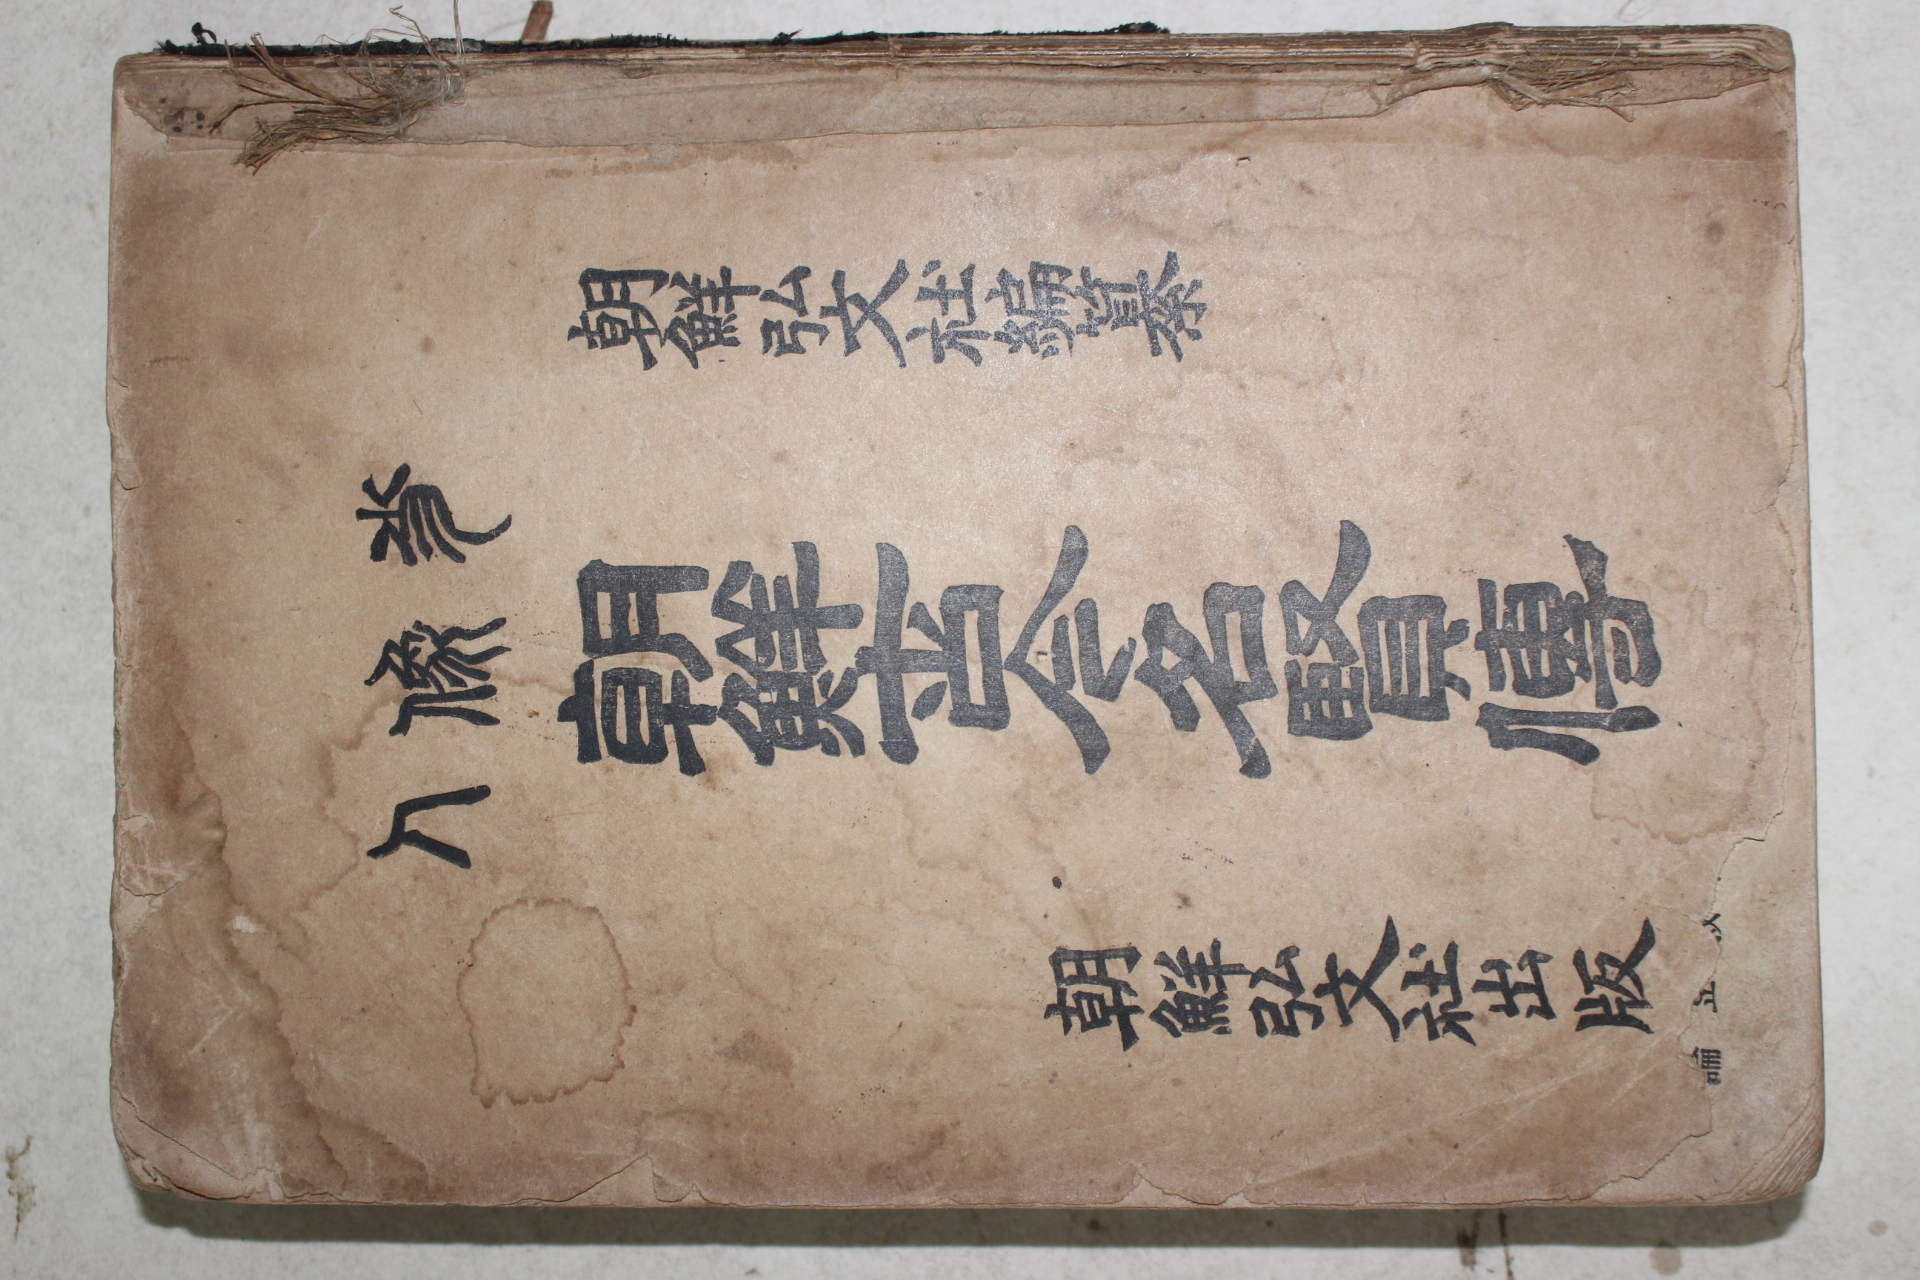 朝鮮弘文社編纂
肖像入
朝鮮古今名賢傳
朝鮮弘文社出版
正論